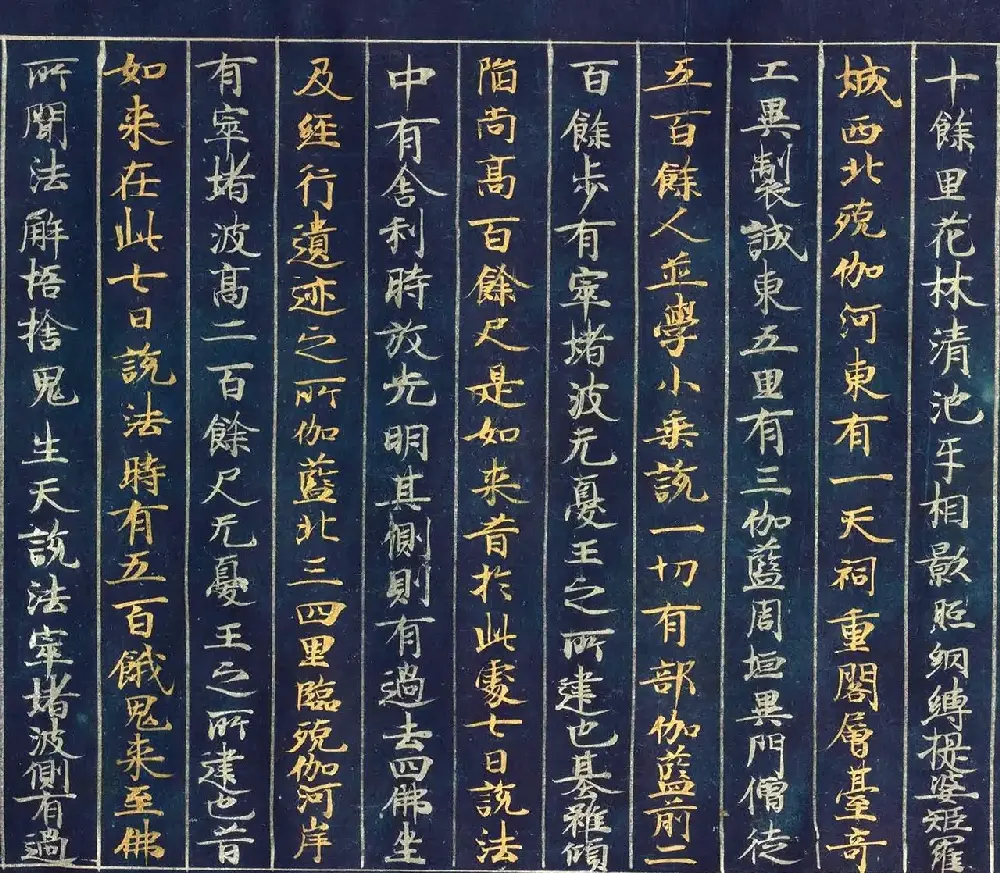 十餘里花林清池㸦相影照納縛提婆矩羅
城西北殑伽河東有一天祠重閣層臺奇
工異製誠東五里有三伽藍周垣異門僧徒
五百餘人並學小乗說一切有部伽藍前二
百餘步有窣堵波无憂王之所建也基雖傾
陷尚髙百餘尺是如来昔於此處七日說法
中有舎利時放光明其側則有過去四佛坐
及經行遺迹之所伽藍北三四里臨殑伽河岸
有窣堵波髙二百餘尺无憂王之所建也昔
如来在此七日說法時有五百餓鬼来至佛
所聞法解悟捨鬼生天說法窣堵波側有過